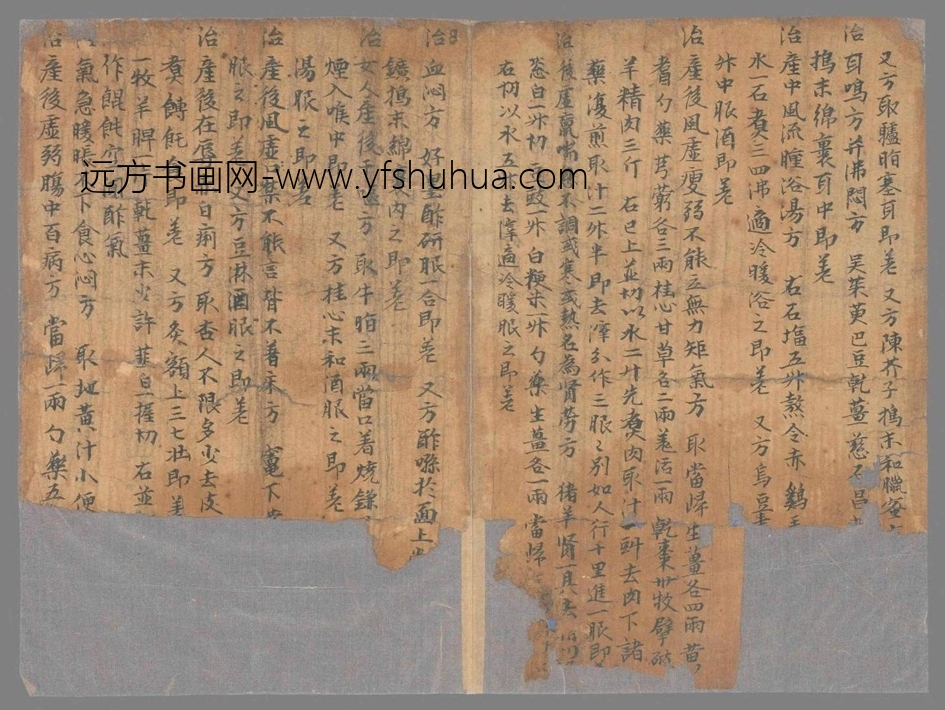 又方取驢脂塞耳即差 又方陳芥子搗末和臘蜜
治耳鳴方并沸悶方 吴茱萸巴豆乾薑慈石昌
搗末綿裹耳中即差
治產中風流瞳浴湯方 右石塩五升熬令赤 鷄
水一石煮三四沸適冷暖浴之即差 又方烏豆
升中服酒即差
治產後風虛瘦弱不能立無力矩氣方 取當歸生薑各四兩黄
耆勺藥芎藭各三兩桂心甘草各二兩羗活一兩乾棗卅牧擘破
羊精肉三斤 右已上並切以水二斗先煮肉取汁一㪷去肉下諸
藥復煎取汁二升半即去滓分作三服〻別如人行十里進一服即
治後虛羸喘 不調或寒或熱名為腎勞方 猪羊腎一具去
葱白一升切 豉一升 白粳米一升 勺藥生薑各一兩當歸
右切以水五 去滓適冷暖服之即差
治血悶方 好墨酢研服一合即差 又方酢噀於面上
鑛搗末綿 內之即差
治女人產後 方 取牛脂三兩當口着燒鎌
煙入喉中即差 又方桂心末和酒服之即差
湯服之即差
治產後風虛 棄不能言皆不着床方 竈下
服之即差又方豆淋酒服之即差
治產後在辱 白痢方 取杏人不限多少去皮
煮餺飥食即差 又方灸額上三七壮即差
一牧羊脾 乾薑末少許 韮白一握切 右並
作餛飩空 酢氣
氣急暖脹 下食心悶方 取地黄汁小便
治產後虛弱腸中百病方 當歸一兩勺藥五
远方书画网-www.yfshuhua.com